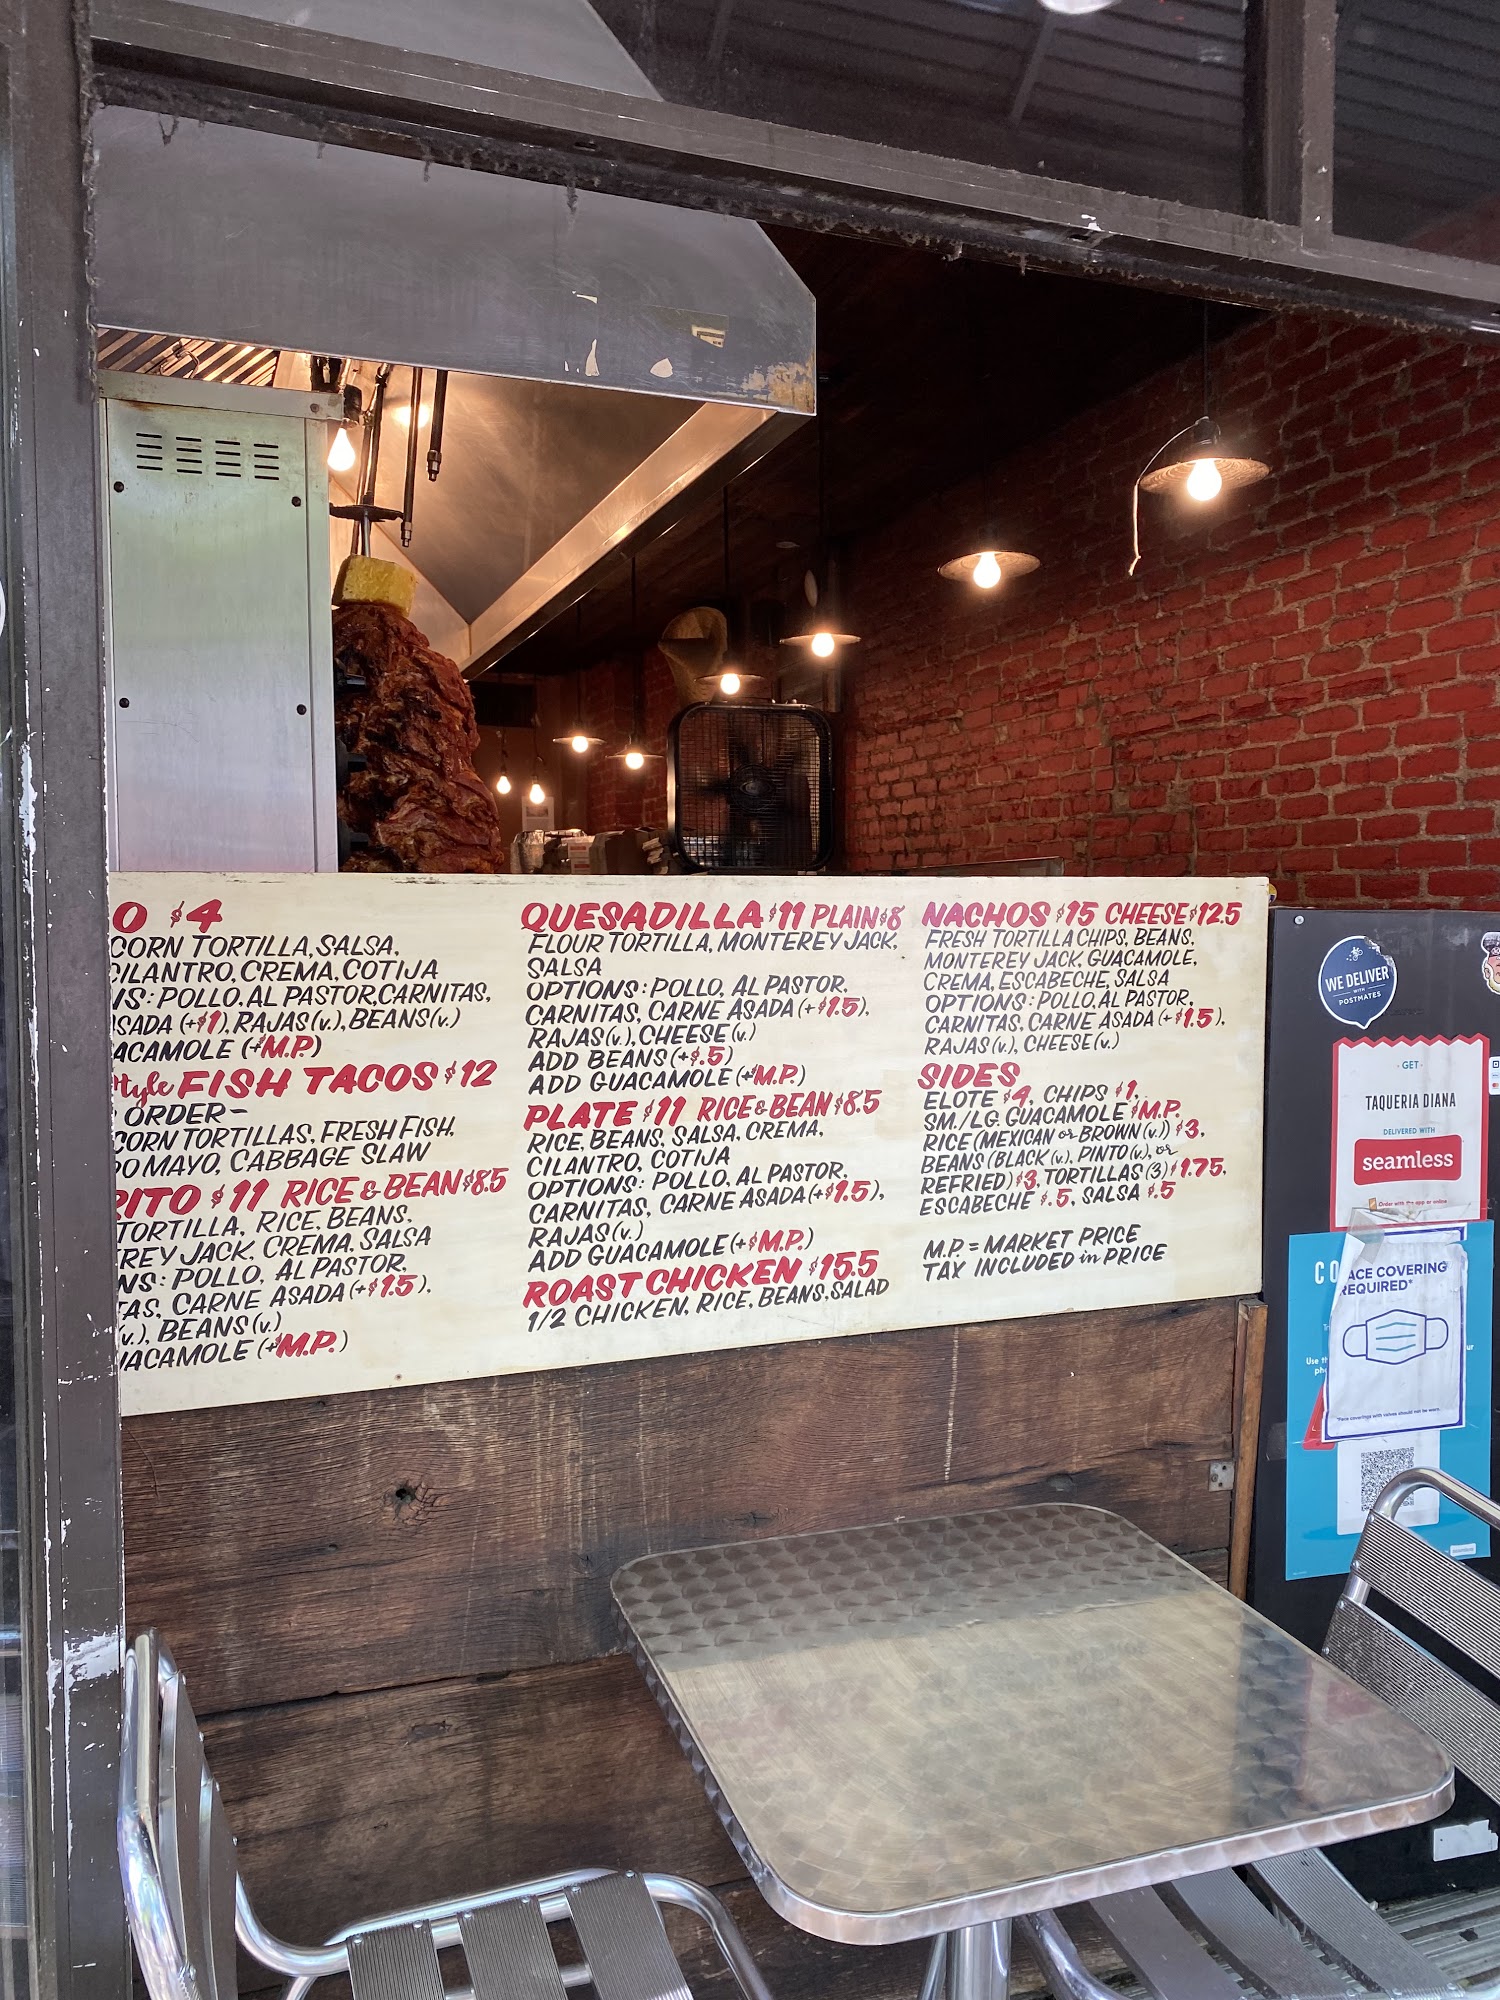 O $4
CORN TORTILLA, SALSA,
CILANTRO, CREMA, COTIJA
NS: POLLO, AL PASTOR, CARNITAS,
ASADA (+$1), RAJAS (v.), BEANS (v.)
ACAMOLE (+$M.P.)
style FISH TACOS $12
ORDER-
CORN TORTILLAS, FRESH FISH,
O MAYO, CABBAGE SLAW
RITO $11 RICE & BEAN $8.5
TORTILLA, RICE, BEANS,
REY JACK, CREMA, SALSA
NS: POLLO, AL PASTOR,
TAS, CARNE ASADA (+$1.5),
(v.), BEANS (v.)
ACAMOLE (+$M.P.)
QUESADILLA $11 PLAIN $8
FLOUR TORTILLA, MONTEREY JACK,
SALSA
OPTIONS: POLLO, AL PASTOR,
CARNITAS, CARNE ASADA (+$1.5),
RAJAS (v.), CHEESE (v.)
ADD BEANS (+$.5)
ADD GUACAMOLE (+$M.P.)
PLATE $11 RICE & BEAN $8.5
RICE, BEANS, SALSA, CREMA,
CILANTRO, COTIJA
OPTIONS: POLLO, AL PASTOR,
CARNITAS, CARNE ASADA (+$1.5),
RAJAS (v.)
ADD GUACAMOLE (+$M.P.)
ROAST CHICKEN $15.5
1/2 CHICKEN, RICE, BEANS, SALAD
NACHOS $15 CHEESE $12.5
FRESH TORTILLA CHIPS, BEANS,
MONTEREY JACK, GUACAMOLE,
CREMA, ESCABECHE, SALSA
OPTIONS: POLLO, AL PASTOR,
CARNITAS, CARNE ASADA (+$1.5),
RAJAS (v.), CHEESE (v.)
SIDES
ELOTE $4, CHIPS $1,
SM./LG. GUACAMOLE $M.P.
RICE (MEXICAN or BROWN (v.)) $3,
BEANS (BLACK (v.), PINTO (v.), or
REFRIED) $3, TORTILLAS (3) $1.75,
ESCABECHE $.5, SALSA $.5
M.P. = MARKET PRICE
TAX INCLUDED in PRICE
WE DELIVER
WITH
POSTMATES
GET
TAQUERIA DIANA
DELIVERED WITH
seamless
Order with the app or online
CO
ACE COVERING
REQUIRED*
*Face coverings with valves should not be worn.